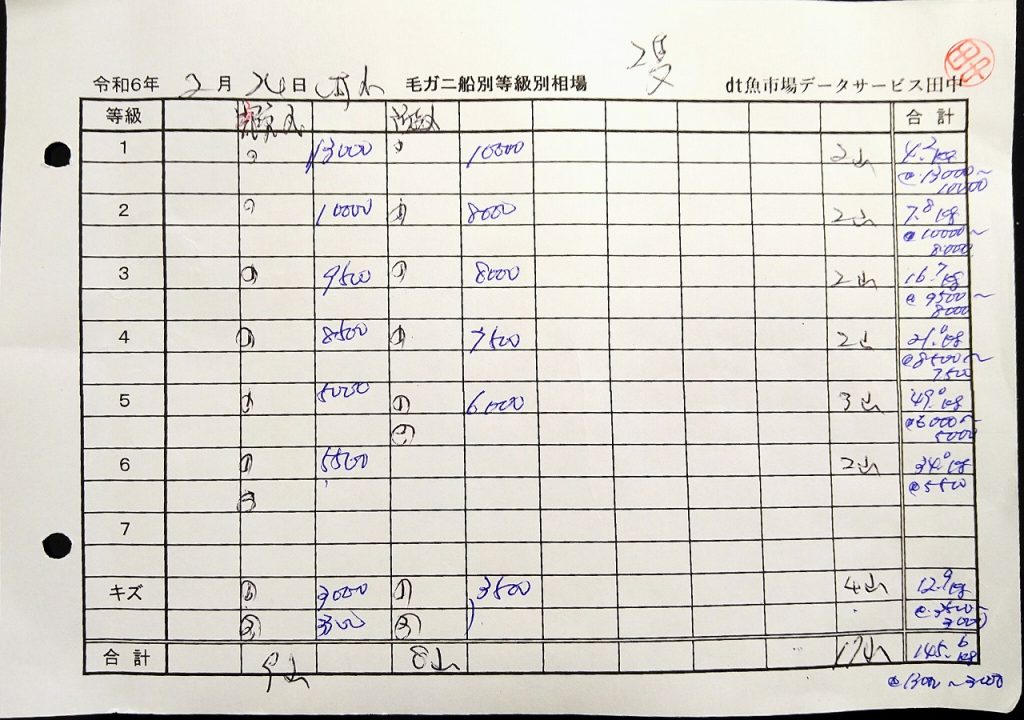 令和6年 2月26日 毛ガニ船別等級別相場 2隻 dt魚市場データサービス田中
等級 合計
1 13000 10000 2山 4.2kg
@13000〜
10000
2 10000 8000 2山 7.8kg
@10000〜
8000
3 ① 9500 ① 8000 2山 16.7kg
@9500〜
8000
4 ① 8500 ① 7500 2山 21.0kg
@8500〜
7500
5 5000 ① 6000 3山 49.0kg
② @6000〜
5000
6 ① 5500 2山 34.0kg
② @5500
7
キズ ② 3000 ① 3500 4山 12.9kg
② 3300 ② @3500〜
3000
合計 9山 8山 17山 145.6kg
@13000〜3000